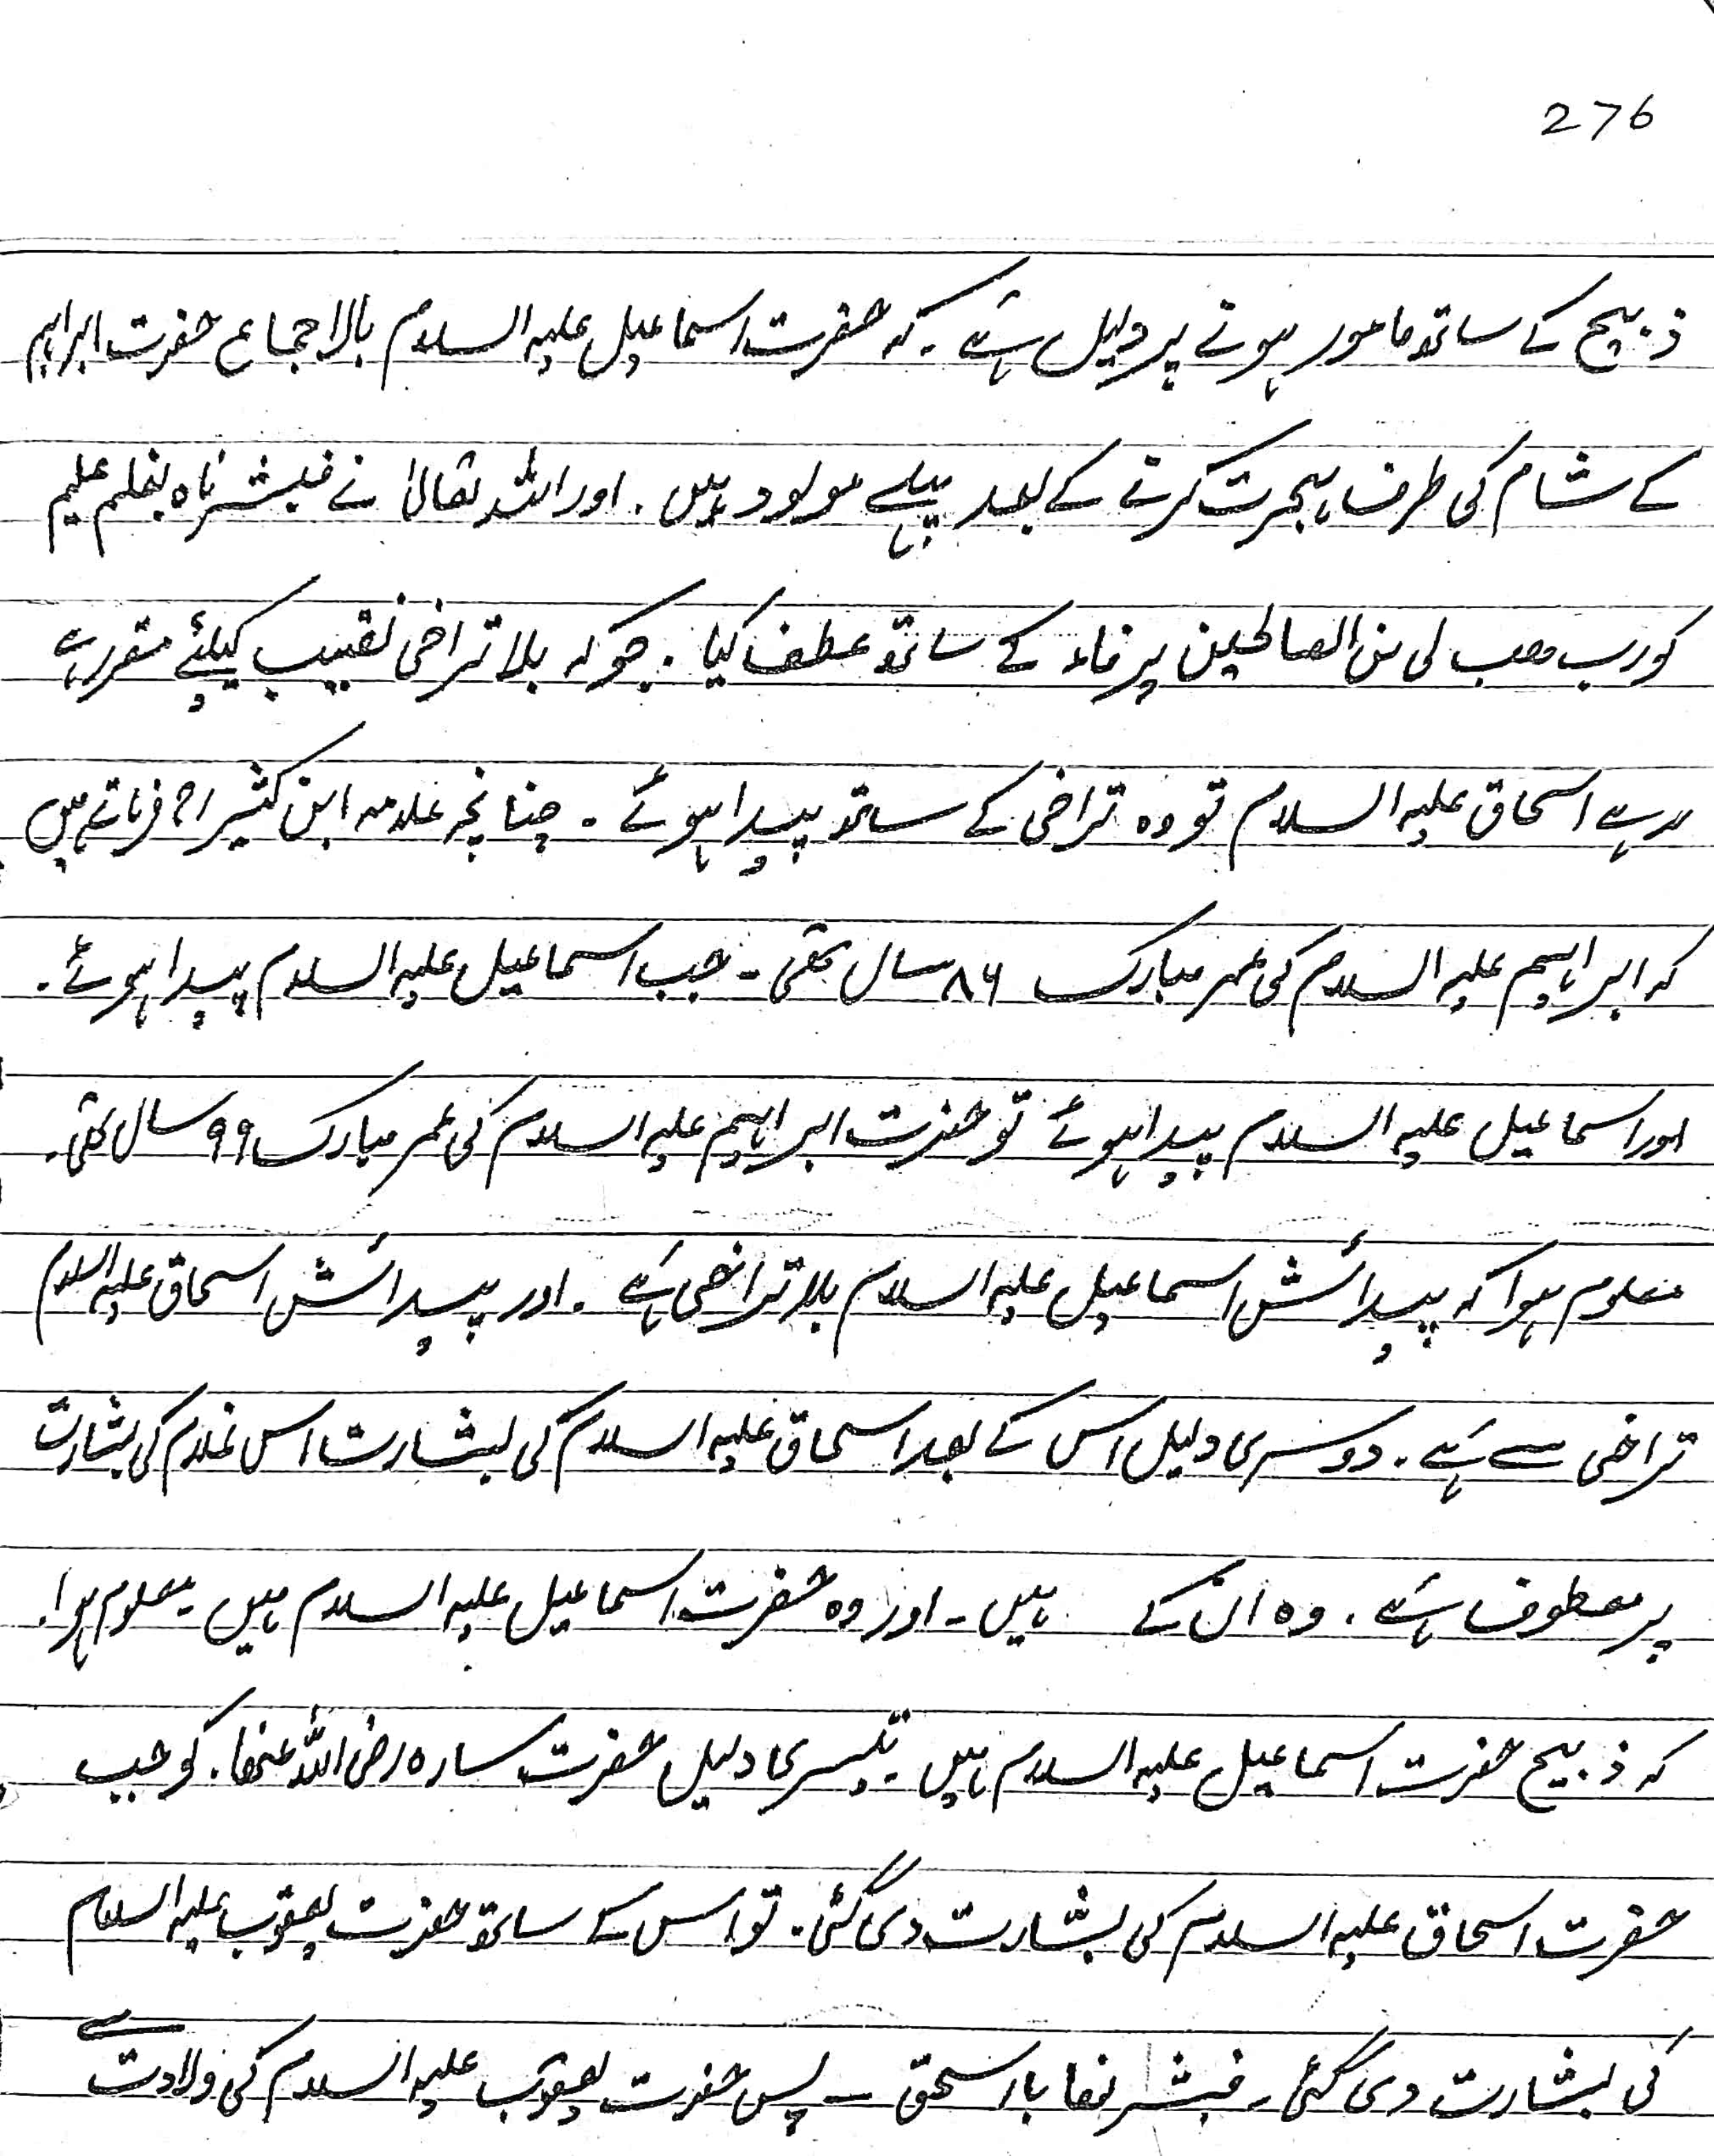 276
ذبیح کے ساتھ مامور ہونے پر دلیل ہے ۔ کہ حضرت اسماعیل علیہ السلام بالاجماع حضرت ابراہیم
کے شام کی طرف ہجرت کرنے کے بعد پہلے مولود ہیں ۔ اور اللہ تعالیٰ نے فبشرناہ بغلم علیم
کو رب ھب لی من الصالحین پر فاء کے ساتھ عطف کیا ۔ جو کہ بلا تراخی تعقیب کیلئے مقرر ہے
رہے اسحاق علیہ السلام تو وہ تراخی کے ساتھ پیدا ہوئے ۔ چنانچہ علامہ ابن کثیر رح فرماتے ہیں
کہ ابراہیم علیہ السلام کی عمر مبارک ۸۶ سال تھی ۔ جب اسماعیل علیہ السلام پیدا ہوئے ۔
اور اسماعیل علیہ السلام پیدا ہوئے تو حضرت ابراہیم علیہ السلام کی عمر مبارک ۹۹ سال تھی ۔
معلوم ہوا کہ پیدائش اسماعیل علیہ السلام بلا تراخی ہے ۔ اور پیدائش اسحاق علیہ السلام
تراخی سے ہے ۔ دوسری دلیل اس کے بعد اسحاق علیہ السلام کی بشارت اس غلام کی بشارت
پر معطوف ہے ۔ وہ ان کے ہیں ۔ اور وہ حضرت اسماعیل علیہ السلام ہیں ۔ معلوم ہوا ۔
کہ ذبیح حضرت اسماعیل علیہ السلام ہیں ۔ تیسری دلیل حضرت سارہ رضی اللہ عنھا ۔ کو جب
حضرت اسحاق علیہ السلام کی بشارت دی گئی ۔ تو اس کے ساتھ حضرت یعقوب علیہ السلام
کی بشارت دی گئی ۔ فبشرنھا بااسحٰق ۔ پس حضرت یعقوب علیہ السلام کی ولادت سے